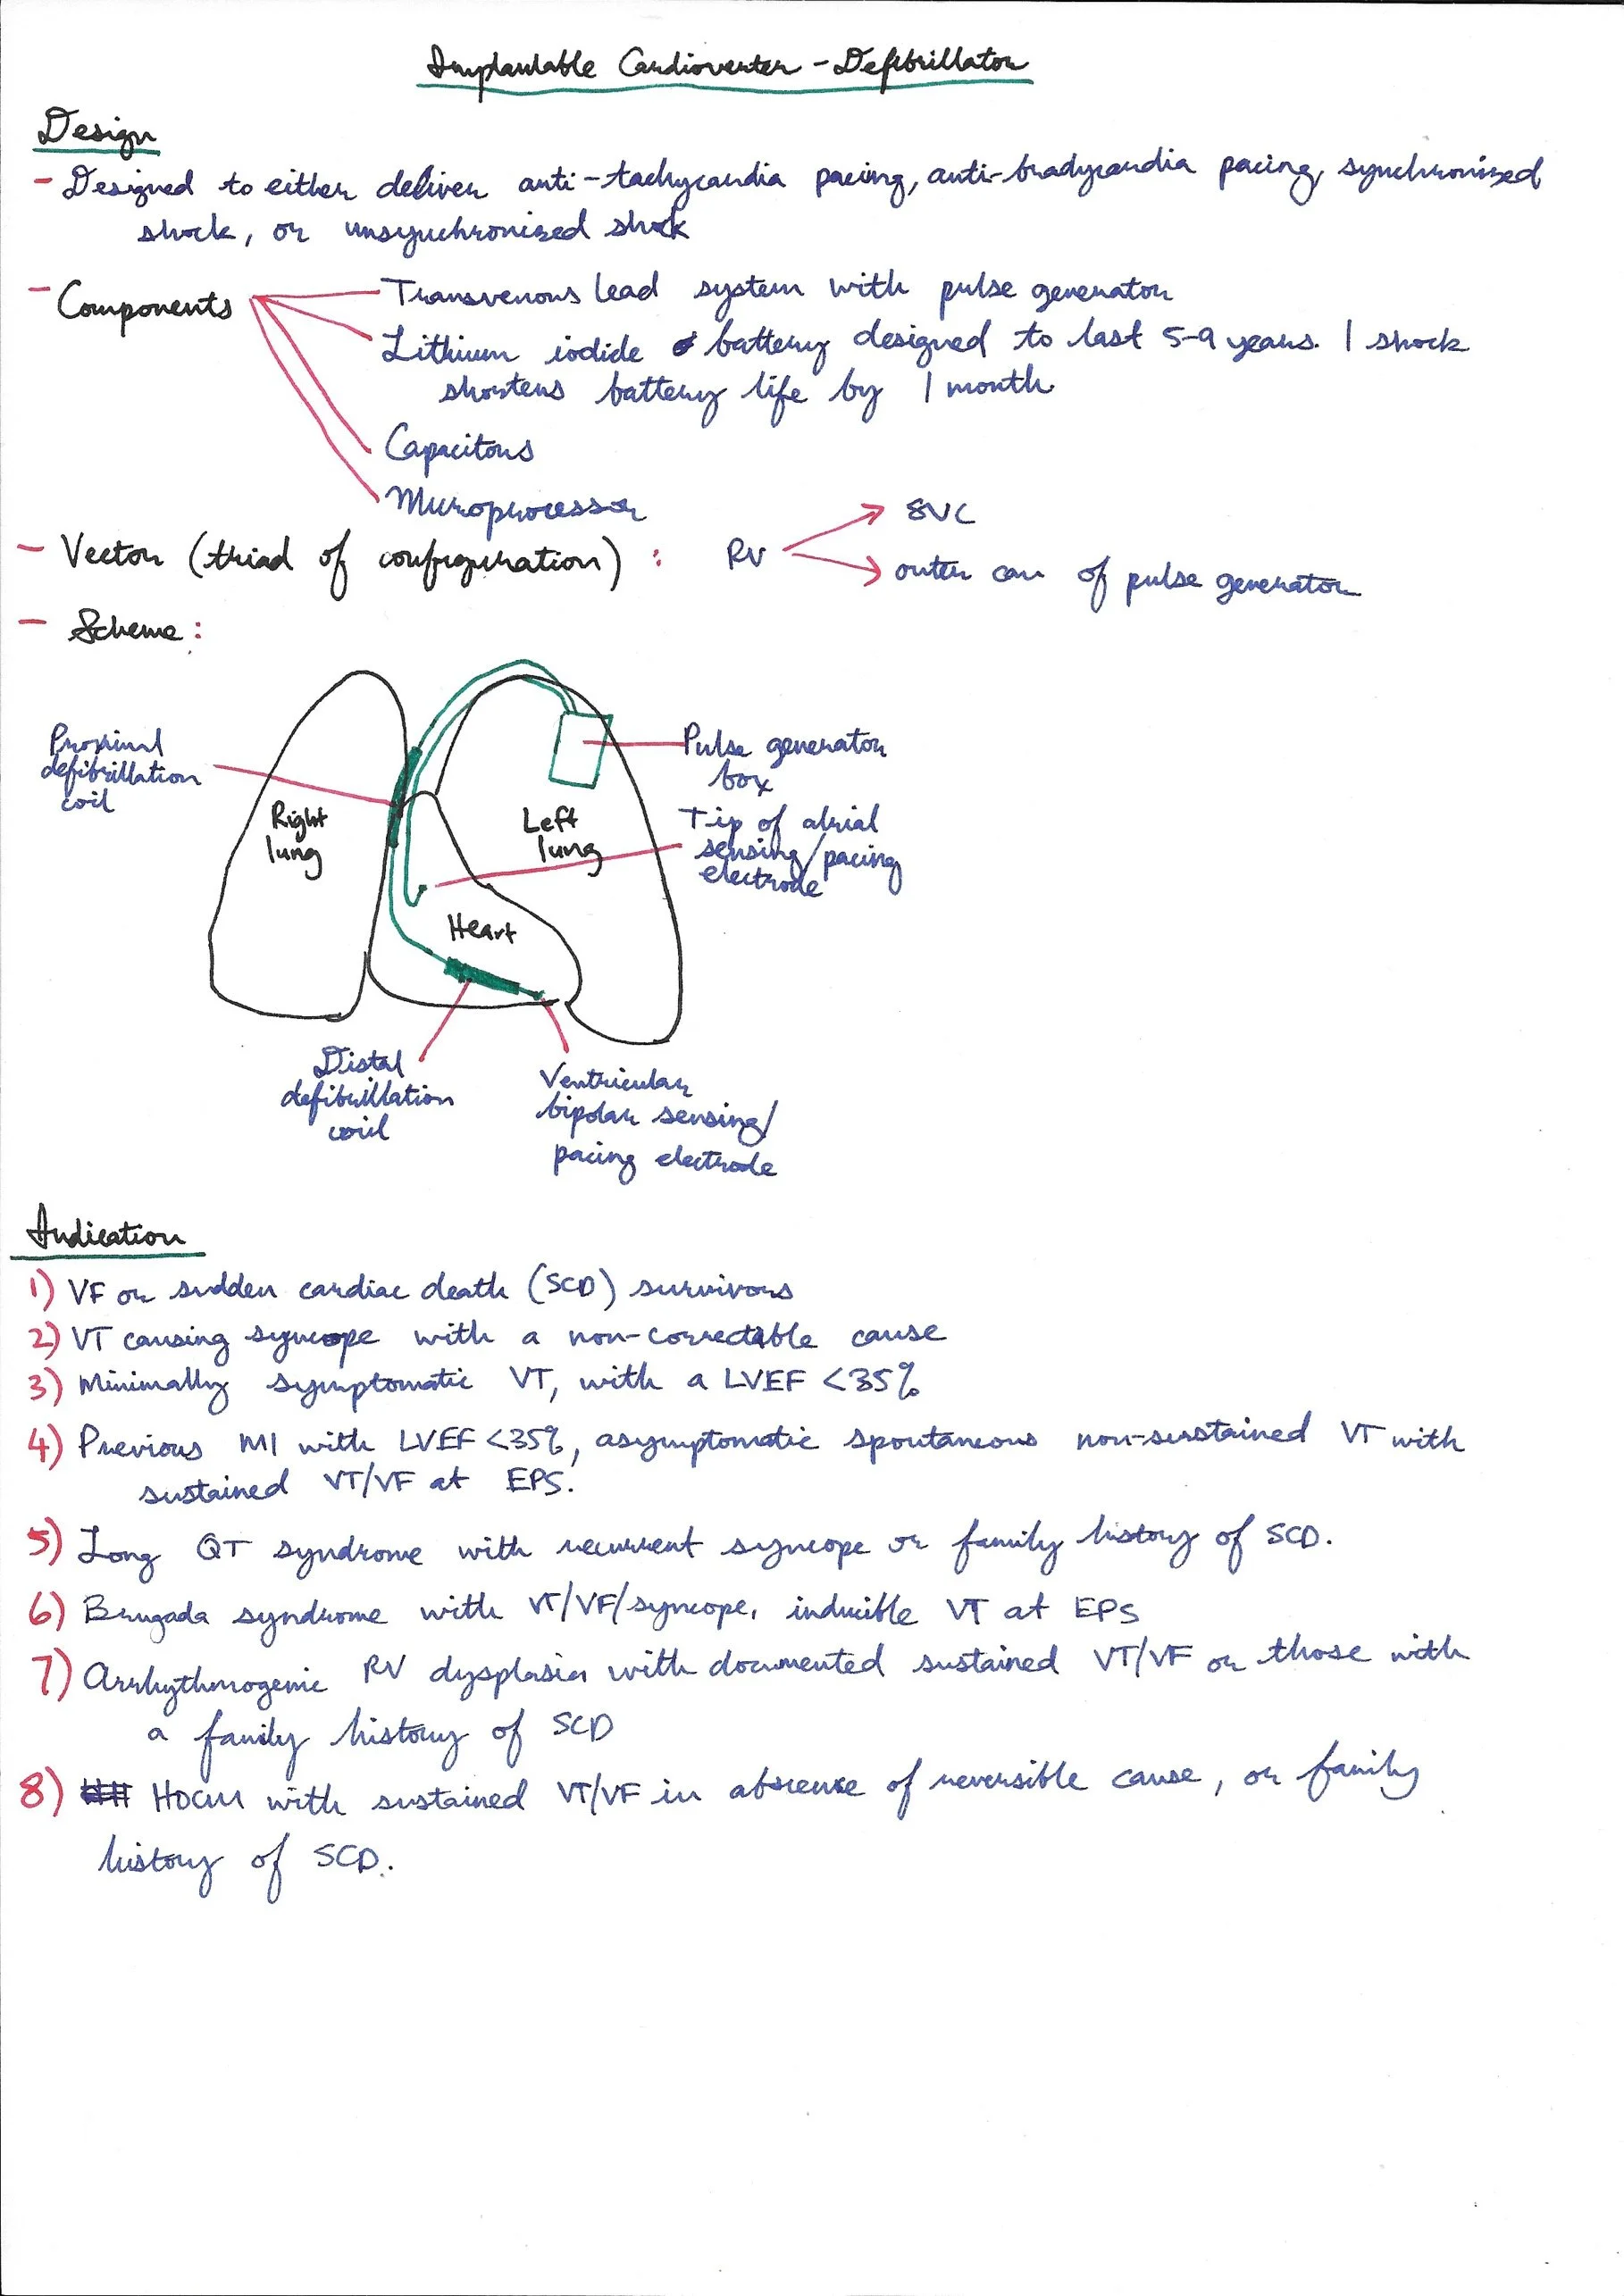 Implantable Cardioverter - Defibrillator
Design
- Designed to either deliver anti-tachycardia pacing, anti-bradycardia pacing, synchronised
shock, or unsynchronised shock
- Components
Transvenous lead system with pulse generator
Lithium iodide battery designed to last 5-9 years. 1 shock
shortens battery life by 1 month
Capacitors
Microprocessor
- Vector (triad of configuration) : RV
SVC
outer can of pulse generator
- Scheme :
Proximal
defibrillation
coil
Right
lung
Left
lung
Heart
Pulse generator
box
Tip of atrial
sensing/pacing
electrode
Distal
defibrillation
coil
Ventricular
bipolar sensing/
pacing electrode
Indication
1) VF or sudden cardiac death (SCD) survivors
2) VT causing syncope with a non-correctable cause
3) Minimally symptomatic VT, with a LVEF <35%
4) Previous MI with LVEF <35%, asymptomatic spontaneous non-sustained VT with
sustained VT/VF at EPS.
5) Long QT syndrome with recurrent syncope or family history of SCD.
6) Brugada syndrome with VT/VF/syncope, inducible VT at EPS
7) Arrhythmogenic RV dysplasia with documented sustained VT/VF or those with
a family history of SCD
8) HOCM with sustained VT/VF in absence of reversible cause, or family
history of SCD.